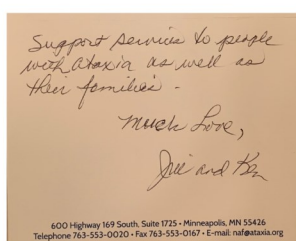 Support services to people
with ataxia as well as
their families -
Much Love,
Jill and Ken
600 Highway 169 South, Suite 1725 • Minneapolis, MN 55426
Telephone 763-553-0020 • Fax 763-553-0167 • E-mail: naf@ataxia.org